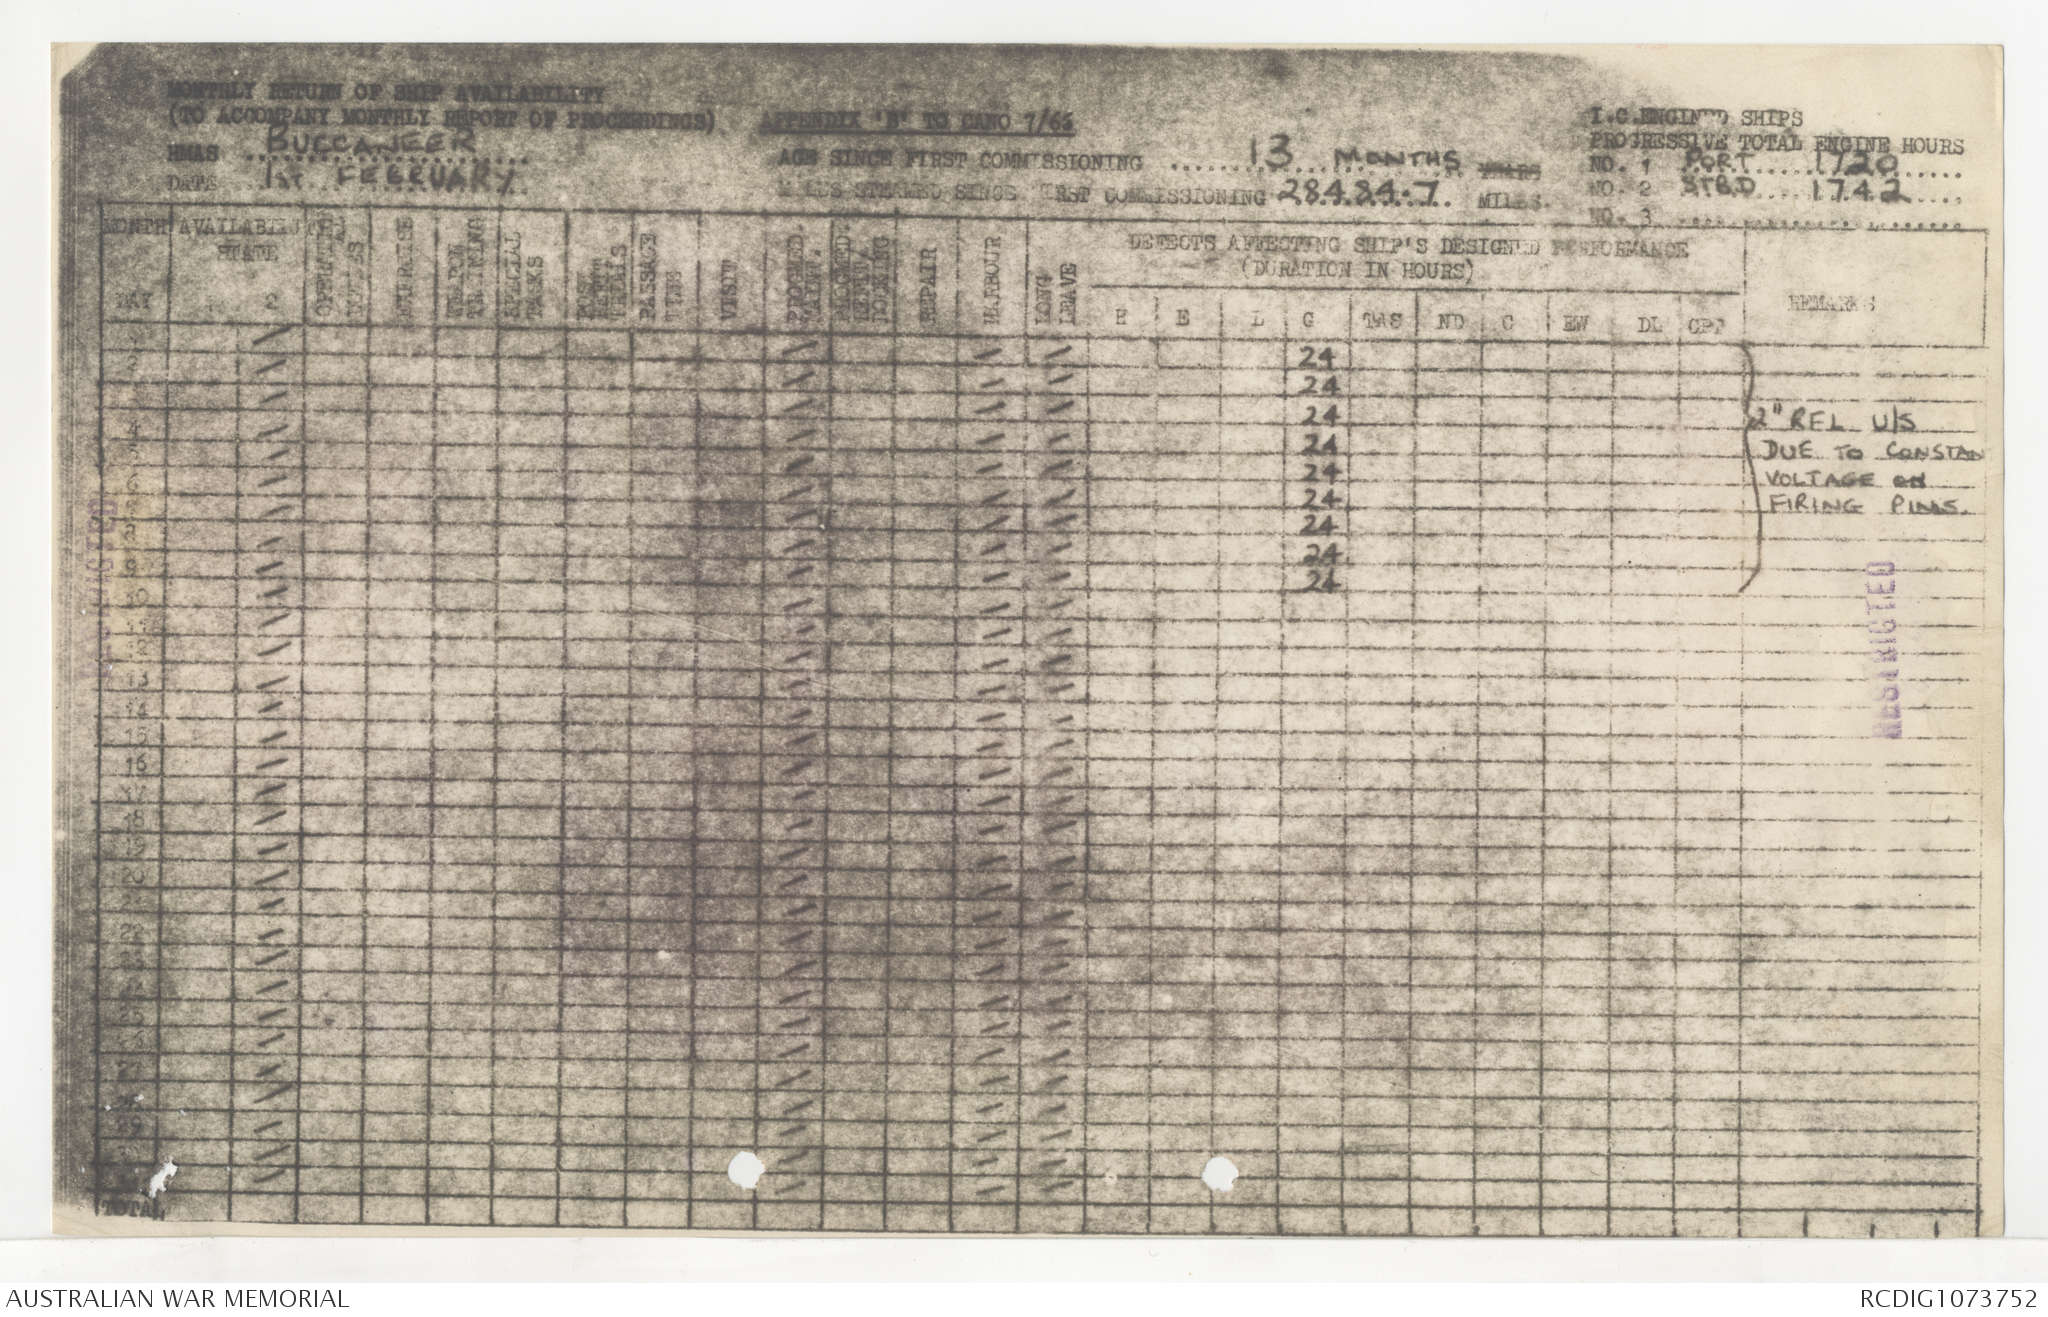 MONTHLY RETURN OF SHIP AVAILABILITY
(TO ACCOMPANY MONTHLY REPORT OF PROCEEDINGS)
APPENDIX 'B' TO CANO 7/65
I.C.ENGINED SHIPS
PROGRESSIVE TOTAL ENGINE HOURS
HMAS BUCCANEER
AGE SINCE FIRST COMMISSIONING 13 MONTHS YEARS
NO. 1 PORT 1720
DATE 1ST FEBRUARY
MILES STEAMED SINCE FIRST COMMISSIONING 28484.7 MILES.
NO. 2 STBD 1742
NO. 3
MONTH
AVAILABILITY STATE
DAY
1 2
OPERATIONAL
EXERCISE
WEAPON TRAINING
SPECIAL TASKS
POST REFIT TRIALS
PASSAGE TIME
VISIT
MAINT.
DOCKING
REPAIR
HARBOUR
LONG LEAVE
DEFECTS AFFECTING SHIP'S DESIGNED PERFORMANCE
(DURATION IN HOURS)
H E L G TAS ND C EW DL CPF
REMARKS
1 24
2 24
3 24
4 24
5 24
6 24
7 24
8 24
9 24
2" RFL U/S
DUE TO CONSTAN
VOLTAGE ON
FIRING PINS.
10
11
12
13
14
15
16
17
18
19
20
21
22
23
24
25
26
27
28
29
30
TOTAL
RESTRICTED
RESTRICTED
AUSTRALIAN WAR MEMORIAL
RCDIG1073752